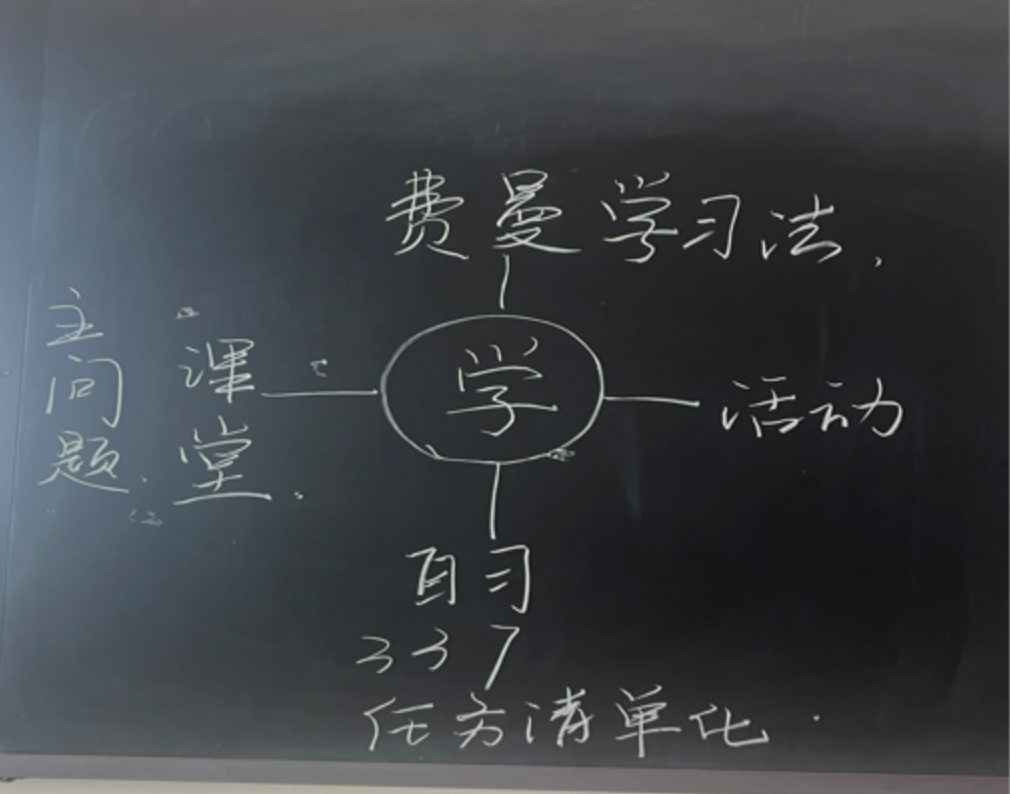 费曼学习法.
主问题.
课堂.
学
活动
自习
337
任务清单化.